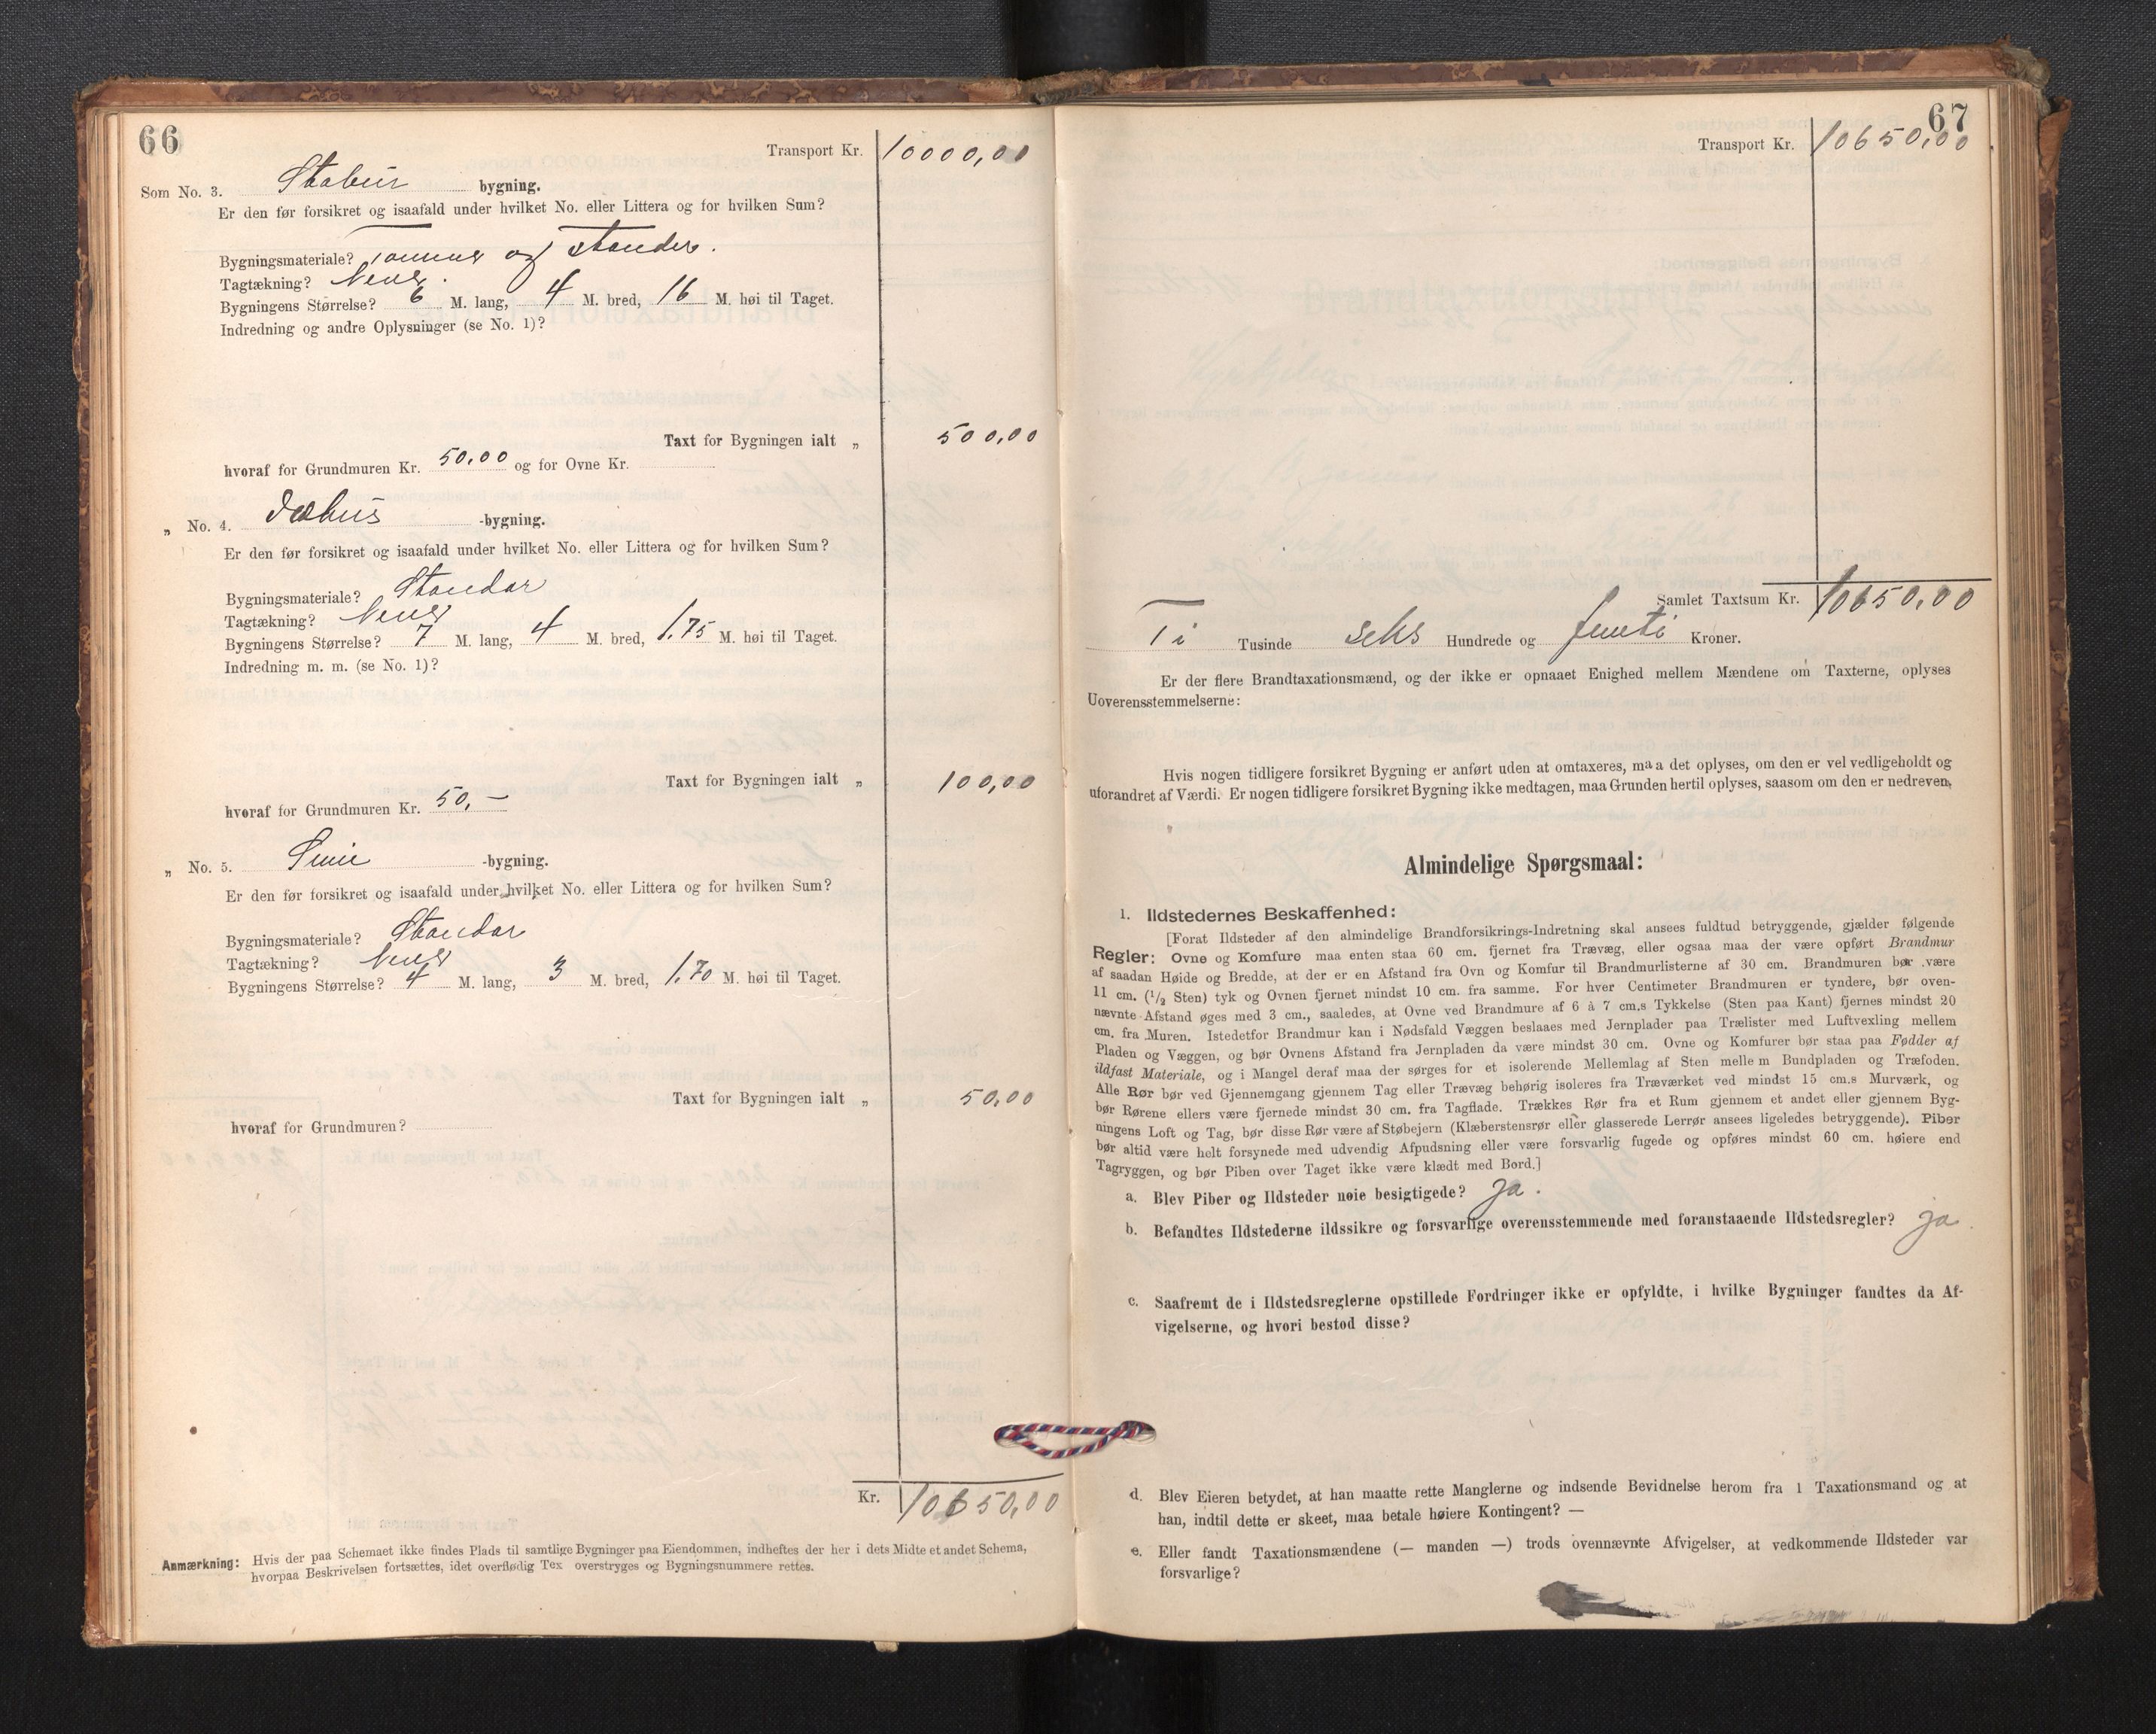 66
Transport Kr. 10000,00
Som No. 3. Stabur bygning.
Er den før forsikret og isaafald under hvilket No. eller Littera og for hvilken Sum?
Bygningsmateriale? Tømmer og stander.
Tagtækning? Never.
Bygningens Størrelse? 6 M. lang, 4 M. bred, 16 M. høi til Taget.
Indredning og andre Oplysninger (se No. 1)?
Taxt for Bygningen ialt „ 500,00
hvoraf for Grundmuren Kr. 50.00 og for Ovne Kr.
„ No. 4. -bygning.
Er den før forsikret og isaafald under hvilket No. eller Littera og for hvilken Sum?
Bygningsmateriale? Standar
Tagtækning? Never
Bygningens Størrelse? 7 M. lang, 4 M. bred, 1.75 M. høi til Taget.
Indredning m. m. (se No. 1)?
Taxt for Bygningen ialt „ 100,00
hvoraf for Grundmuren Kr. 50,—
„ No. 5. Smie -bygning.
Er den før forsikret og isaafald under hvilket No. eller Littera og for hvilken Sum?
Bygningsmateriale? Standar
Tagtækning? Never
Bygningens Størrelse? 4 M. lang, 3 M. bred, 1.70 M. høi til Taget.
Taxt for Bygningen ialt „ 50,00
hvoraf for Grundmuren?
Kr. 10650,00
Anmærkning: Hvis der paa Schemaet ikke findes Plads til samtlige Bygninger paa Eiendommen, indheftes der her i dets Midte et andet Schema,
hvorpaa Beskrivelsen fortsættes, idet overflødig Tex overstryges og Bygningsnummere rettes.
67
Transport Kr. 10650,00
Samlet Taxtsum Kr. 10650,00
Ti Tusinde seks Hundrede og femti Kroner.
Er der flere Brandtaxationsmænd, og der ikke er opnaaet Enighed mellem Mændene om Taxterne, oplyses
Uoverensstemmelserne:
Hvis nogen tidligere forsikret Bygning er anført uden at omtaxeres, maa det oplyses, om den er vel vedligeholdt og
uforandret af Værdi. Er nogen tidligere forsikret Bygning ikke medtagen, maa Grunden hertil oplyses, saasom om den er nedreven.
Almindelige Spørgsmaal:
1. Ildstedernes Beskaffenhed:
[Forat Ildsteder af den almindelige Brandforsikrings-Indretning skal ansees fuldtud betryggende, gjælder følgende
Regler: Ovne og Komfure maa enten staa 60 cm. fjernet fra Trævæg, eller ogsaa maa der være opført Brandmur
af saadan Høide og Bredde, at der er en Afstand fra Ovn og Komfur til Brandmurlisterne af 30 cm. Brandmuren bør være
11 cm. (1/2 Sten) tyk og Ovnen fjernet mindst 10 cm. fra samme. For hver Centimeter Brandmuren er tyndere, bør oven-
nævnte Afstand øges med 3 cm., saaledes, at Ovne ved Brandmure af 6 à 7 cm.s Tykkelse (Sten paa Kant) fjernes mindst 20
cm. fra Muren. Istedetfor Brandmur kan i Nødsfald Væggen beslaaes med Jernplader paa Trælister med Luftvexling mellem
Pladen og Væggen, og bør Ovnens Afstand fra Jernpladen da være mindst 30 cm. Ovne og Komfurer bør staa paa Fødder af
ildfast Materiale, og i Mangel deraf maa der sørges for et isolerende Mellemlag af Sten mellem Bundpladen og Træfoden.
Alle Rør bør ved Gjennemgang gjennem Tag eller Trævæg behørig isoleres fra Træværket ved mindst 15 cm.s Murværk, og
bør Rørene ellers være fjernede mindst 30 cm. fra Tagflade. Trækkes Rør fra et Rum gjennem et andet eller gjennem Byg-
ningens Loft og Tag, bør disse Rør være af Støbejern (Klæberstensrør eller glasserede Lerrør ansees ligeledes betryggende). Piber
bør altid være helt forsynede med udvendig Afpudsning eller være forsvarlig fugede og opføres mindst 60 cm. høiere end
Tagryggen, og bør Piben over Taget ikke være klædt med Bord.]
a. Blev Piber og Ildsteder nøie besigtigede? ja.
b. Befandtes Ildstederne ildssikre og forsvarlige overensstemmende med foranstaaende Ildstedsregler? ja
c. Saafremt de i Ildstedsreglerne opstillede Fordringer ikke er opfyldte, i hvilke Bygninger fandtes da Af-
vigelserne, og hvori bestod disse?
d. Blev Eieren betydet, at han maatte rette Manglerne og indsende Bevidnelse herom fra 1 Taxationsmand og at
han, indtil dette er skeet, maa betale høiere Kontingent? —
e. Eller fandt Taxationsmændene (— manden —) trods ovennævnte Afvigelser, at vedkommende Ildsteder var
forsvarlige?